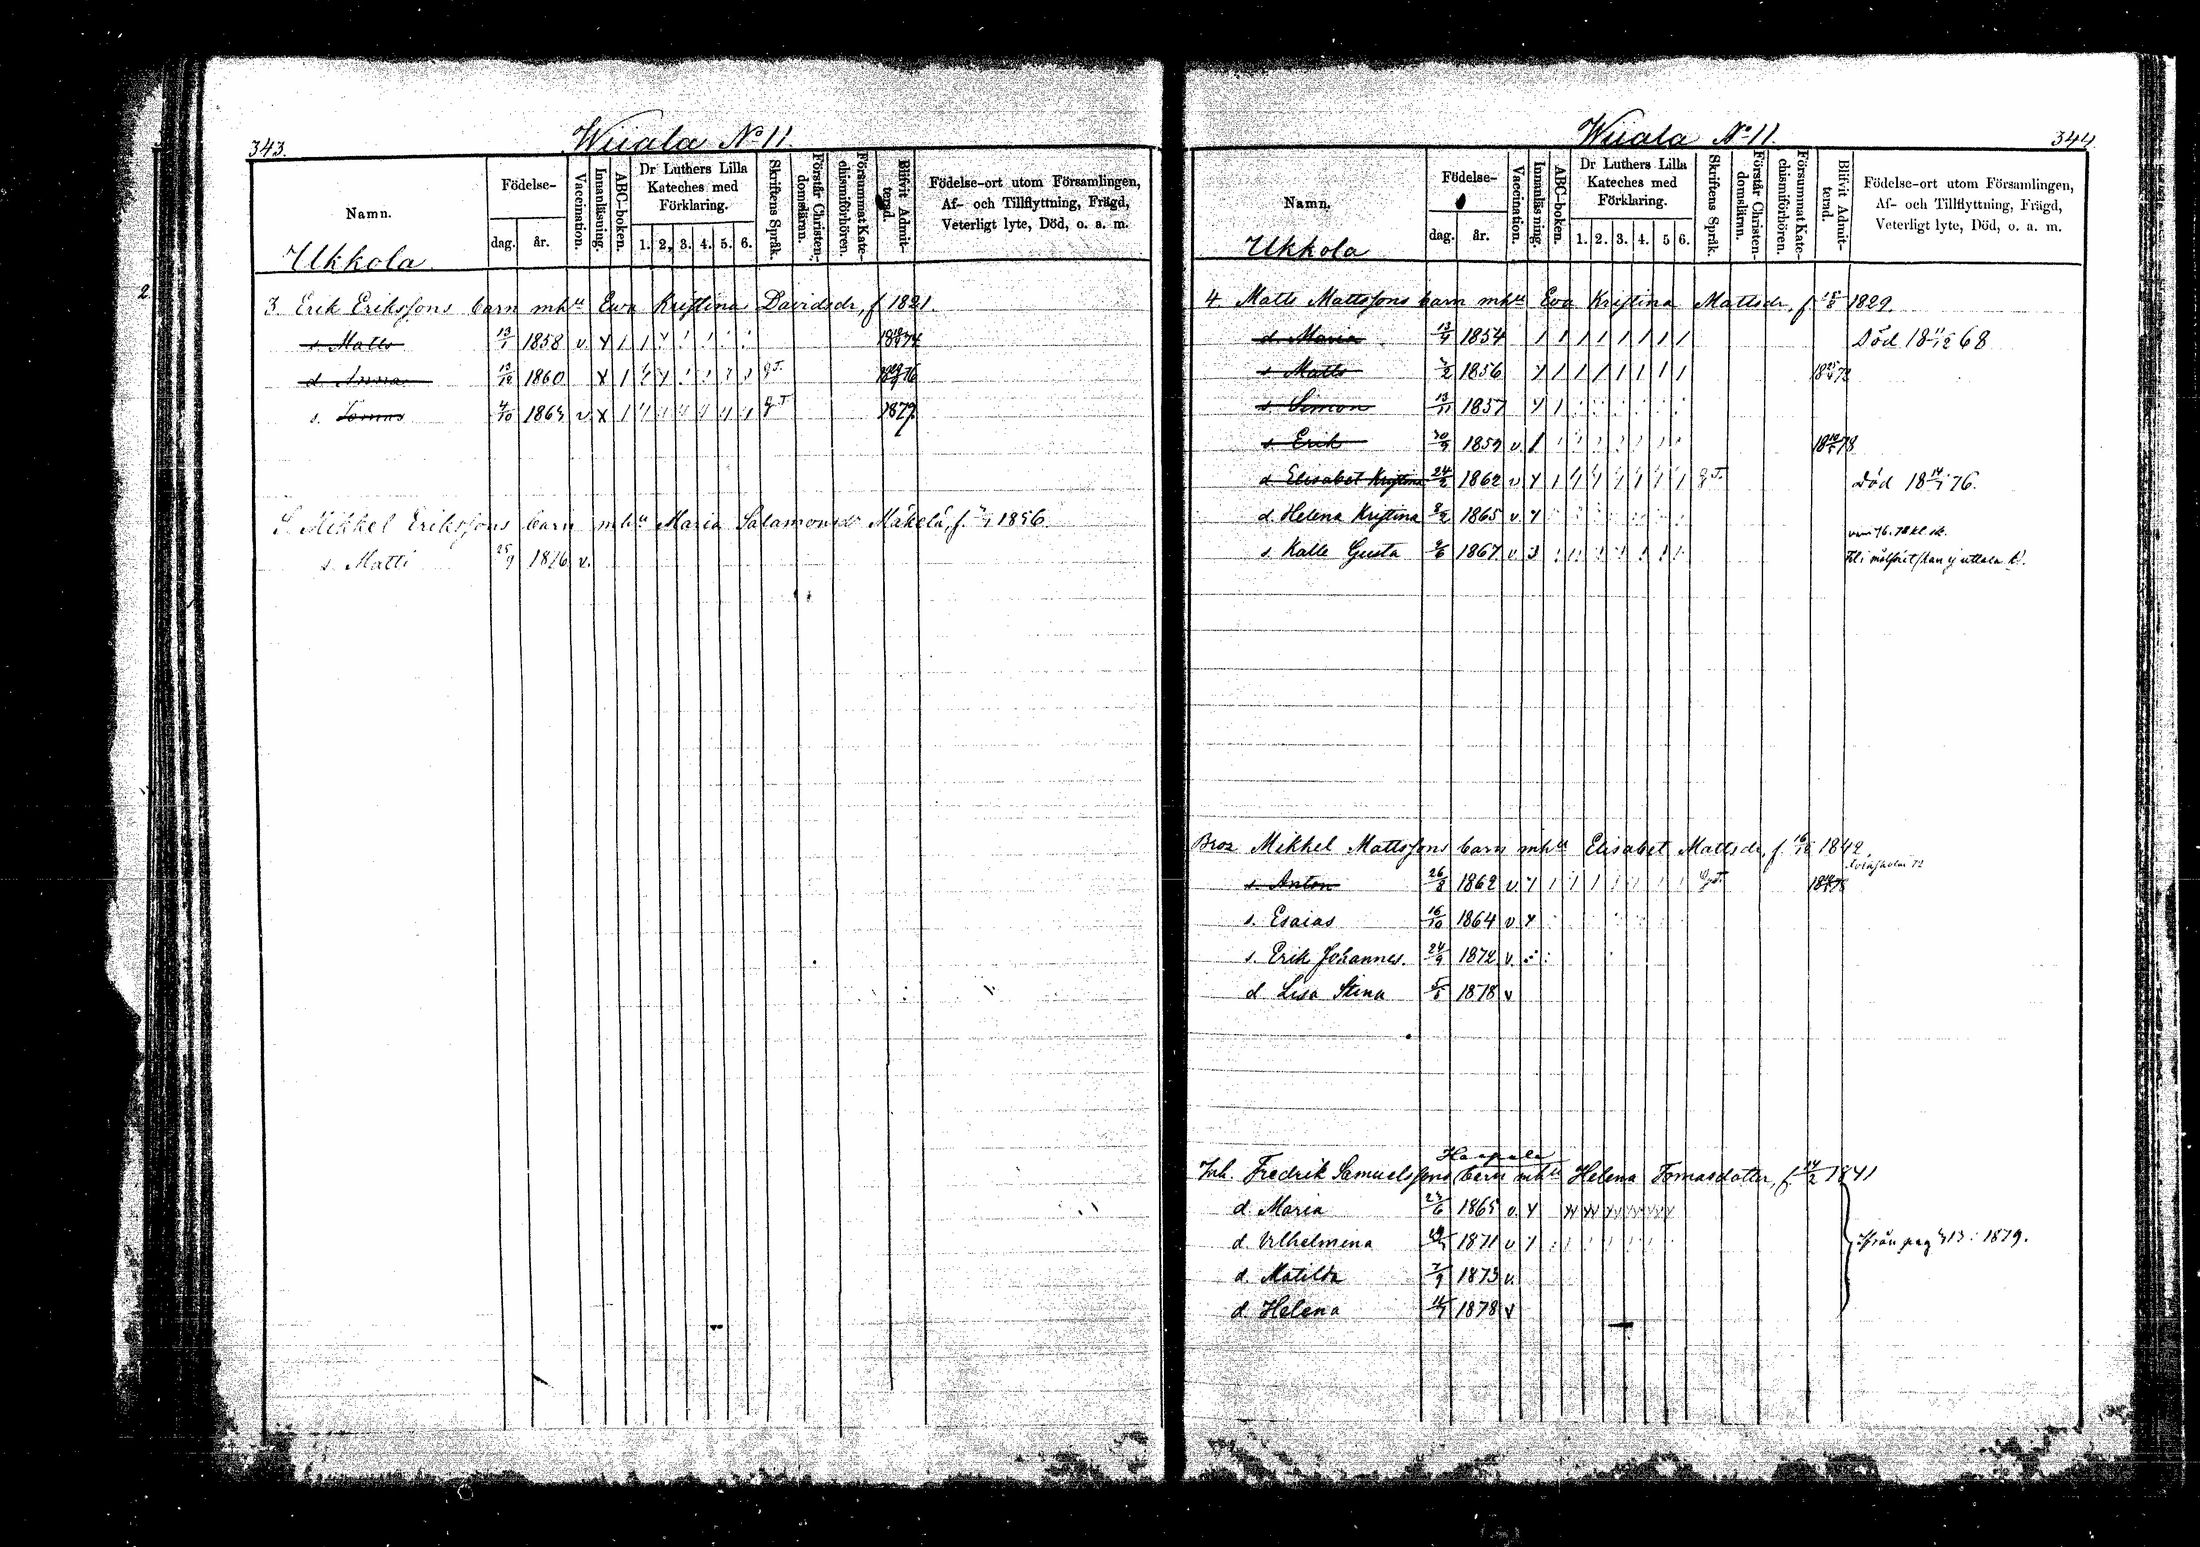 343.
Wiiala No 11.
Namn.
Födelse-
dag. år.
Vaccination.
Innanläsning.
ABC-boken.
Dr Luthers Lilla Kateches med Förklaring.
1. 2. 3. 4. 5. 6.
Skriftens Språk.
Förstår Christen-domslärnn.
Försummat Kate-chismiförhören.
Blifvit Admit-terad.
Födelse-ort utom Församlingen,
Af- och Tillflyttning, Frägd,
Veterligt lyte, Död, o. a. m.
Ukkola
2
3 Erik Erikssons barn mhu Ewa Kristina Davidsdr, f 1821.
s. Matts 13/1 1858 v
d. Anna 13/12 1860
s. Tomas 4/10 1863 v 1879
S. Mikkel Erikssons barn mhu Maria Salamonsdr Mäkelä, f. 1856
s. Matti 25/9 1876 v.
344
Wiiala No 11.
Namn.
Födelse-
dag. år.
Vaccination.
Innanläsning.
ABC-boken.
Dr Luthers Lilla Kateches med Förklaring.
1. 2. 3. 4. 5 6.
Skriftens Språk.
Förstår Christen-domslärnn.
Försummat Kate-chismiförhören.
Blifvit Admit-terad.
Födelse-ort utom Församlingen,
Af- och Tillflyttning, Frägd,
Veterligt lyte, Död, o. a. m.
Ukkola
4 Matts Mattssons barn mhu Eva Kristina Mattsdr, f. 1829.
d. Maria 13/9 1854 Död 18 11/12 68
s. Matts 1856
s. Simon 13/11 1857
s. Erik 30/9 1859 v.
d. Elisabet Kristina 24/2 1862 v Död 18 14/1 76.
d. Helena Kristina 8/2 1865 v.
s. Kalle Gusta 9/6 1867 v
Broz Mikkel Mattssons barn mhu Elisabet Mattsdr, f. 1842
s. Anton 26/8 1862 v.
s. Esaias 16/10 1864 v
s. Erik Johannes. 24/9 1872 v.
d Lisa Stina 1878 v
Haapala
Inh. Fredrik Samuelssons barn mhu Helena Tomasdotter, f 14/2 1841
d. Maria 23/6 1865 v.
d. Vilhelmina 1871 v
d. Matilda 7/9 1873 v. Ifrån pag 1879.
d. Helena 1878 v